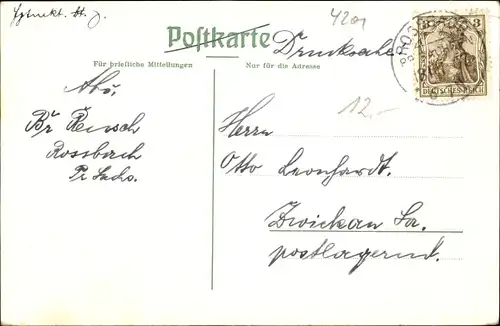 4201
Postkarte
Drucksache
Für briefliche Mitteilungen
Nur für die Adresse
3 3
DEUTSCHES REICH
12.-
Abs.
Rossbach
Pr Sachs.
Herrn
Otto Leonhardt.
Zwickau Sa.
postlagernd.